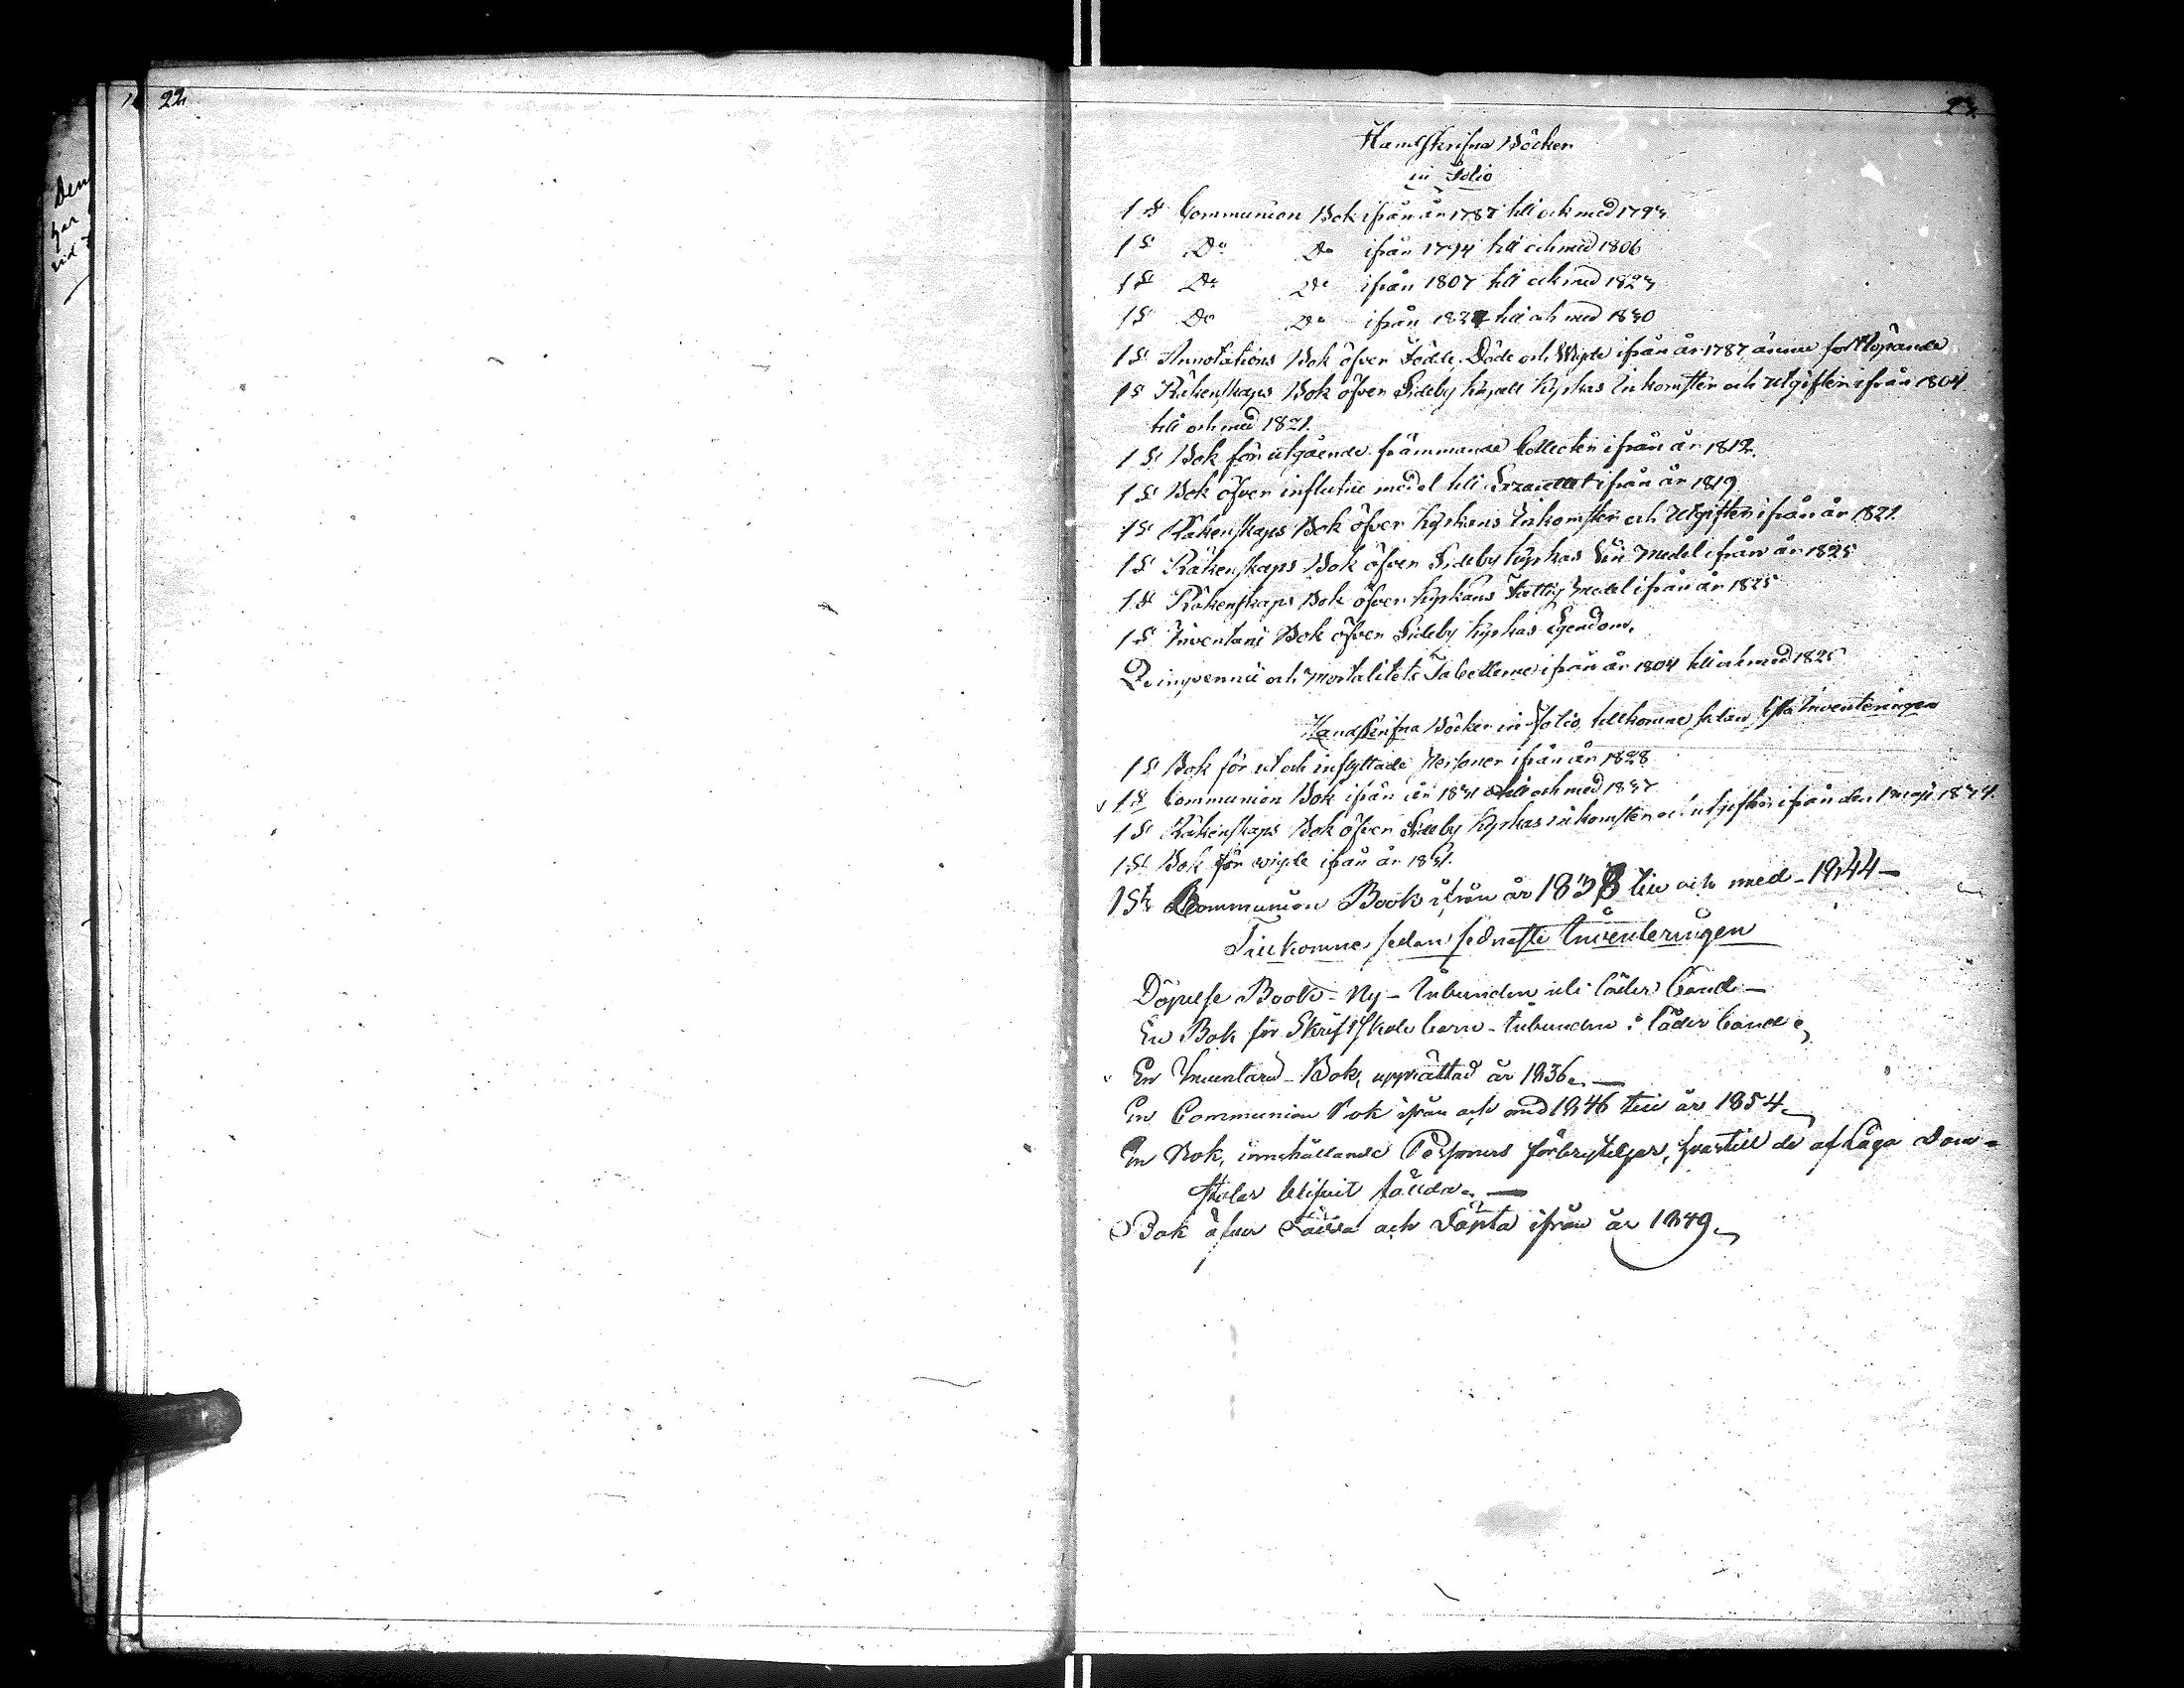 22.
23.
Den
har
vid
Handskrifna Böcker
in Folio
1 St Communion Bok ifrån år 1787 till och med 1793
1 St Do Do ifrån 1794 till och med 1806
1 St Do Do ifrån 1807 till och med 1823
1 St Do Do ifrån 1824 till och med 1830
1 St Annotations Bok öfver Födde, Döde och Wigde ifrån år 1787, ännu fortlöpande
1 St Räkenskaps Bok öfver Sideby Kapell Kyrkas Inkomster och Utgifter ifrån 1804
till och med 1821.
1 St Bok för utgående främmande Collecter ifrån år 1812.
1 St Bok öfver influtne medel till ifrån år 1819
1 St Räkenskaps Bok öfver Kyrkans Inkomster och Utgifter ifrån år 1821.
1 St Räkenskaps Bok öfver Sideby Kyrkas Vin Medel ifrån år 1825
1 St Räkenskaps Bok öfver Kyrkans Fattig Medel ifrån år 1825
1 St Inventarii Bok öfver Sideby Kyrkas Egendom.
Quinquennii och Mortalitets Tabellerne ifrån år 1804 till och med 1825
Handskrifna Böcker in Folio, tillkomne sedan sista Inventeringen
1 St Bok för ut och inflyttade Personer ifrån år 1828
1 St Communion Bok ifrån år 1831 till och med 1837
1 St Räkenskaps Bok öfver Sideby Kyrkas inkomster och utgifter ifrån den 1 maji 1834.
1 St Bok för wigde ifrån år 1831.
1 St Communion Book ifrån år 1838 till och med - 1844 -
Tillkomne sedan sednaste Inventeringen
Döpelse Book - Ny - Inbunden uti läder band -
En Bok för Skriftskole barn - inbunden i läder band.
En Inventarii - Bok, upprättad år 1836. -
En Communion Bok ifrån och med 1846 till år 1854.
En Bok, innehållande Personers förbrytelser, hvartill de af Låga Dom-
stolar blifvit fällda. -
Bok öfver Födda och Döpta ifrån år 1849.